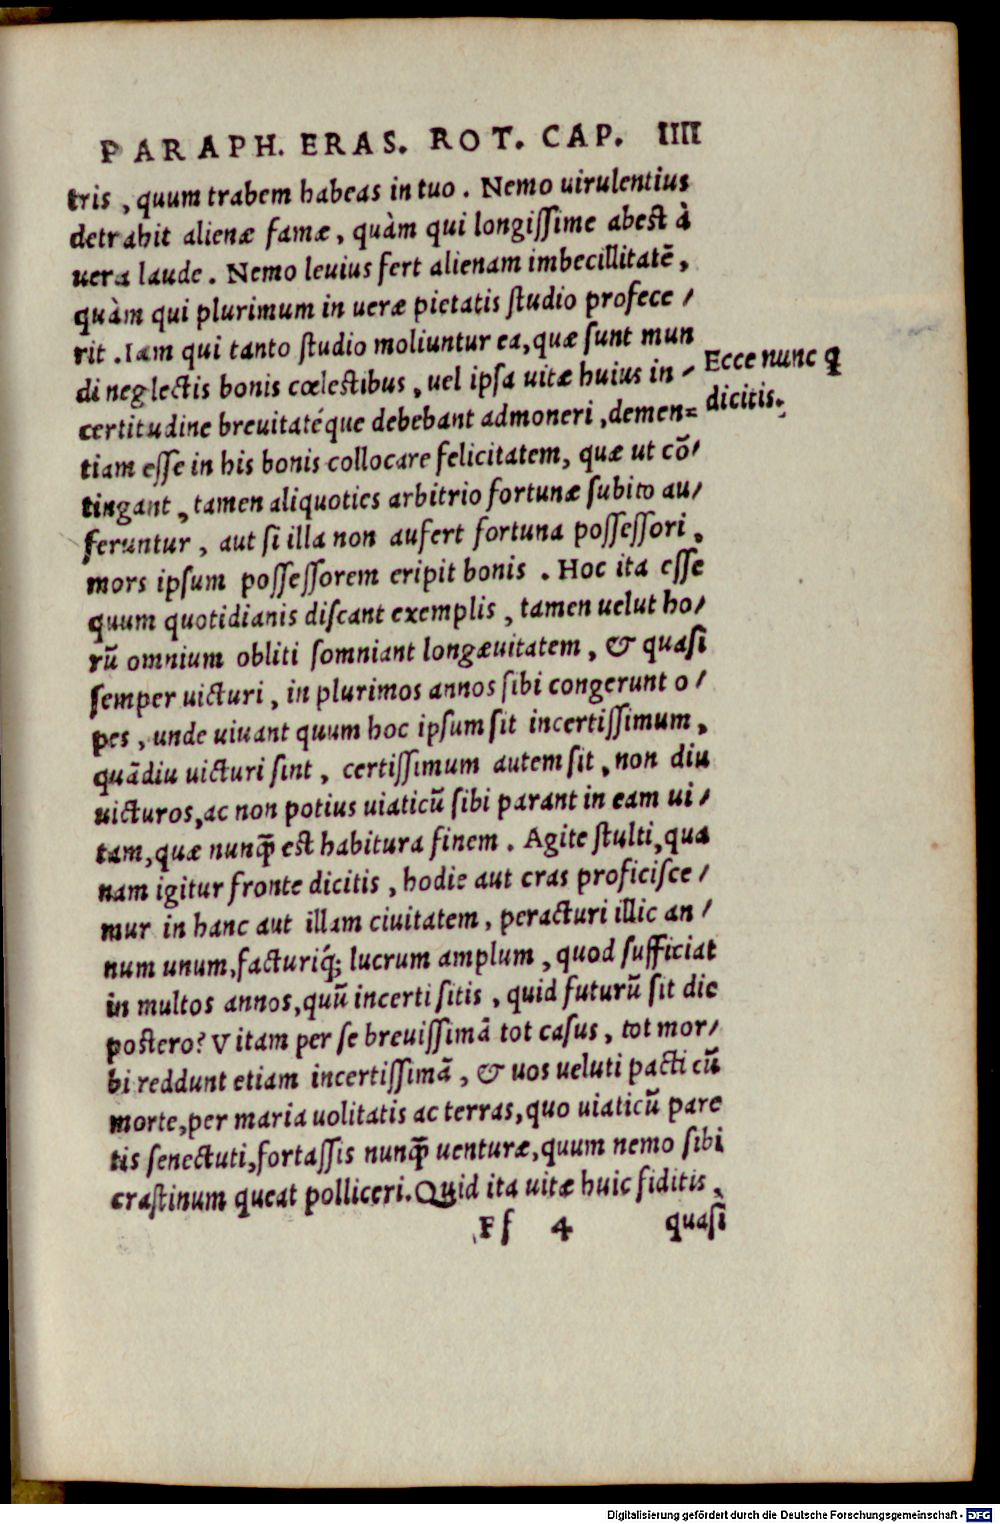 PARAPH. ERAS. ROT. CAP. IIII
tris, quum trabem habeas in tuo. Nemo uirulentius
detrahit alienæ famæ, quàm qui longiſſime abest à
uera laude. Nemo leuius fert alienam imbecillitatē,
quàm qui plurimum in ueræ pietatis ſtudio profece/
rit. Iam qui tanto ſtudio moliuntur ea, quæ ſunt mun
di neglectis bonis cœlestibus, uel ipſa uitæ huius in/
certitudine breuitatéque debebant admoneri, demen=
tiam eſſe in his bonis collocare felicitatem, quæ ut cō/
tingant, tamen aliquoties arbitrio fortunæ ſubito au/
feruntur, aut ſi illa non aufert fortuna poſſeſſori,
mors ipſum poſſeſſorem eripit bonis. Hoc ita eſſe
quum quotidianis diſcant exemplis, tamen uelut ho/
rū omnium obliti ſomniant longæuitatem, & quaſi
ſemper uicturi, in plurimos annos ſibi congerunt o/
pes, unde uiuant quum hoc ipſum ſit incertiſſimum,
quādiu uicturi ſint, certiſſimum autem ſit, non diu
uicturos, ac non potius uiaticū ſibi parant in eam ui/
tam, quæ nunꝙ̄ est habitura finem. Agite ſtulti, qua
nam igitur fronte dicitis, hodie aut cras proficiſce/
mur in hanc aut illam ciuitatem, peracturi illic an/
num unum, facturiq́; lucrum amplum, quod ſufficiat
in multos annos, quū incerti ſitis, quid futurū ſit die
postero? Vitam per ſe breuiſſimā tot caſus, tot mor/
bi reddunt etiam incertiſſimā, & uos ueluti pacti cū
morte, per maria uolitatis ac terras, quo uiaticū pare
tis ſenectuti, fortaſſis nunꝙ̄ uenturæ, quum nemo ſibi
craſtinum queat polliceri. Quid ita uitæ huic fiditis,
Ff 4 quaſi
Ecce nunc q
dicitis.
Digitalisierung gefördert durch die Deutsche Forschungsgemeinschaft - DFG